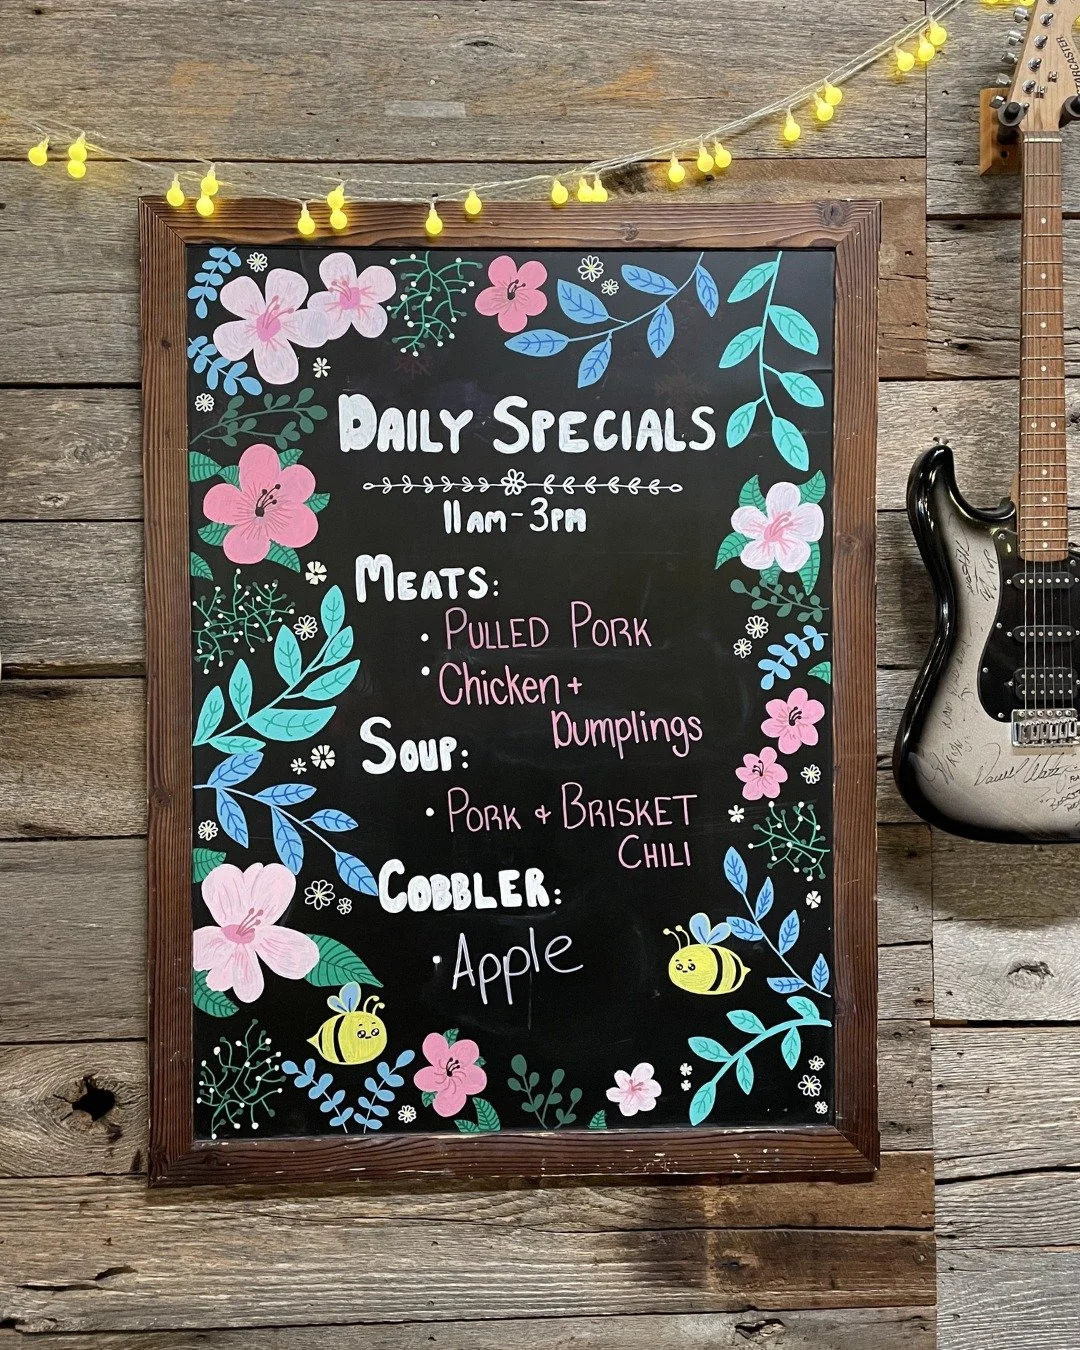 DAILY SPECIALS
11AM-3PM
MEATS:
• PULLED PORK
• Chicken +
Dumplings
SOUP:
• PORK & BRISKET
CHILI
COBBLER:
• Apple